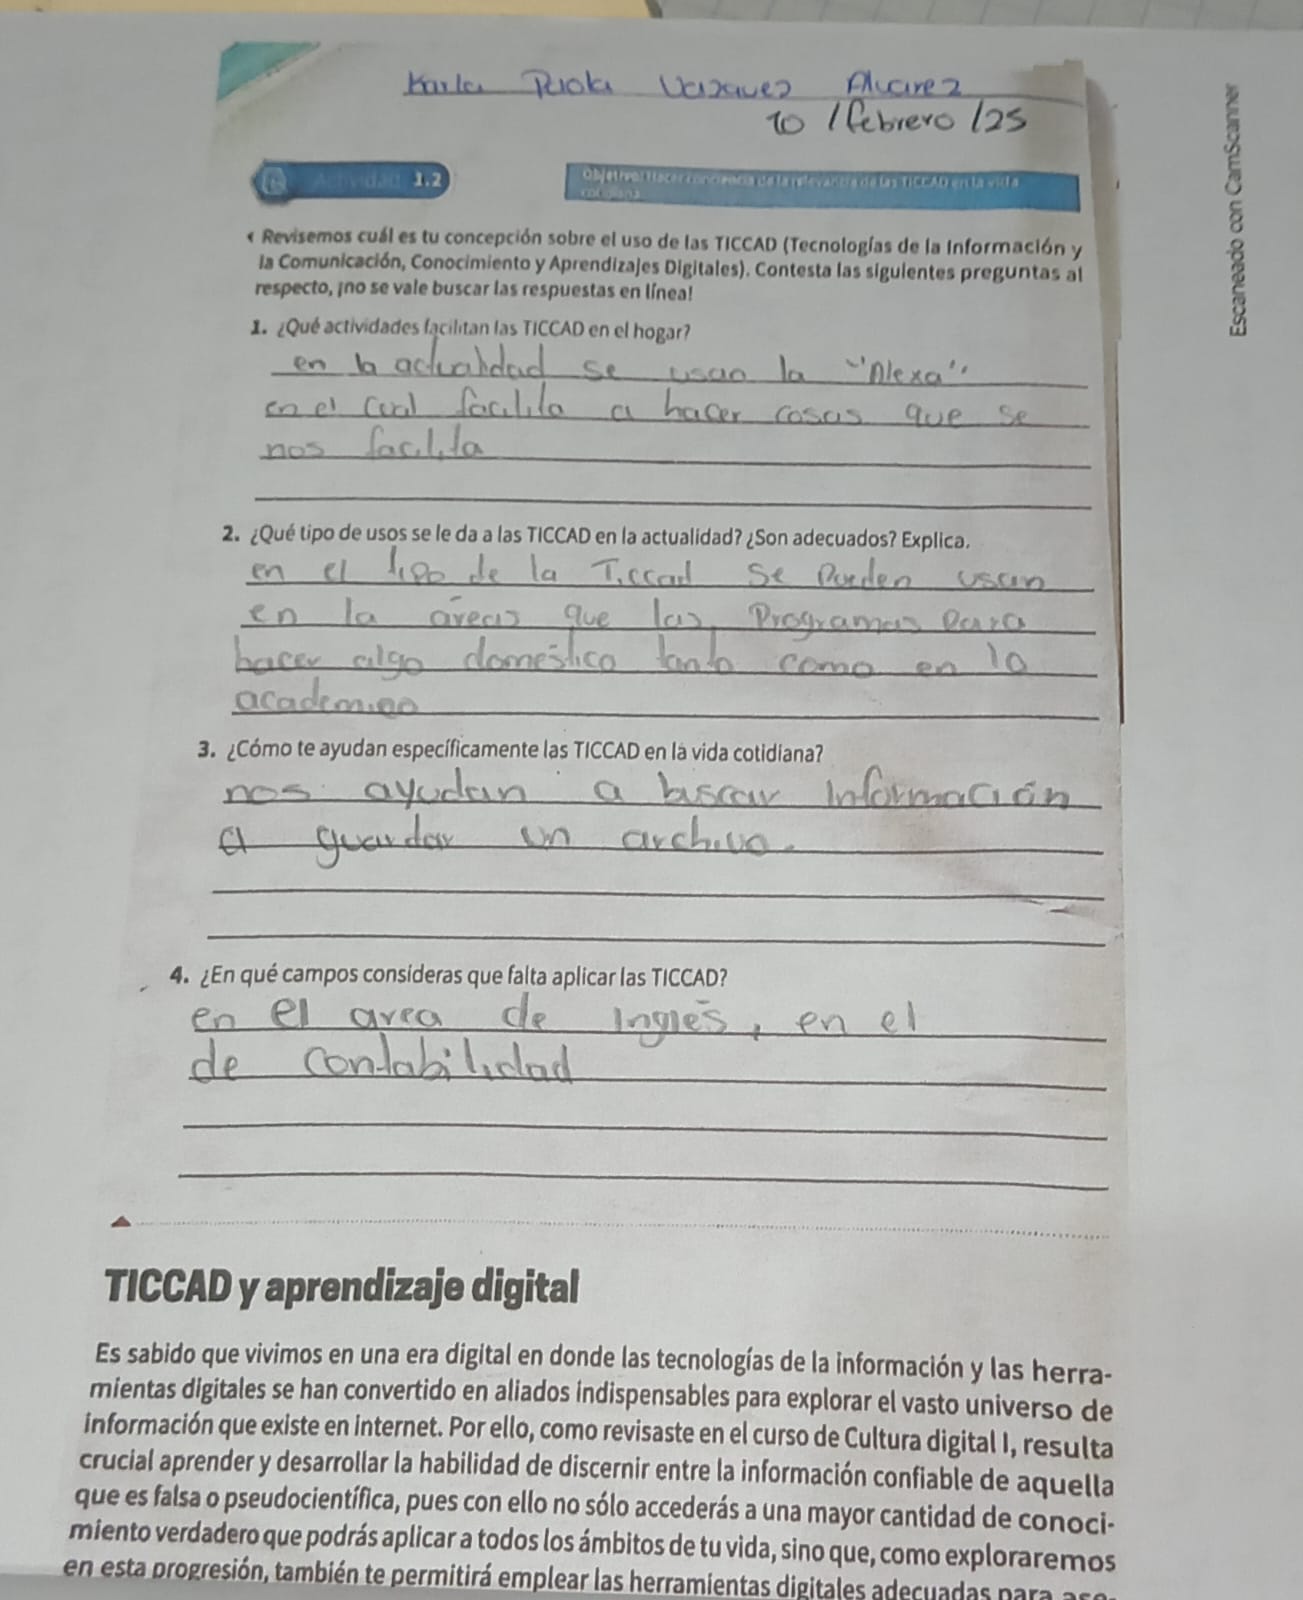 Karla Paola Vazquez Alvarez
10 / febrero / 25
Actividad 1.2
Objetivo: Hacer conciencia de la relevancia de las TICCAD en la vida
cotidiana.
Revisemos cuál es tu concepción sobre el uso de las TICCAD (Tecnologías de la Información y
la Comunicación, Conocimiento y Aprendizajes Digitales). Contesta las siguientes preguntas al
respecto, ¡no se vale buscar las respuestas en línea!
1. ¿Qué actividades facilitan las TICCAD en el hogar?
en la actualidad se usan la "Alexa"
en el cual facilita a hacer cosas que se
nos facilita
2. ¿Qué tipo de usos se le da a las TICCAD en la actualidad? ¿Son adecuados? Explica.
en el tipo de la Ticcad se pueden usan
en la áreas que las programas para
hacer algo doméstico tanto como en lo
academico
3. ¿Cómo te ayudan específicamente las TICCAD en la vida cotidiana?
nos ayudan a buscar información
a guardar un archivo.
4. ¿En qué campos consideras que falta aplicar las TICCAD?
en el area de Inglés, en el
de contabilidad
TICCAD y aprendizaje digital
Es sabido que vivimos en una era digital en donde las tecnologías de la información y las herra-
mientas digitales se han convertido en aliados indispensables para explorar el vasto universo de
información que existe en internet. Por ello, como revisaste en el curso de Cultura digital I, resulta
crucial aprender y desarrollar la habilidad de discernir entre la información confiable de aquella
que es falsa o pseudocientífica, pues con ello no sólo accederás a una mayor cantidad de conoci-
miento verdadero que podrás aplicar a todos los ámbitos de tu vida, sino que, como exploraremos
en esta progresión, también te permitirá emplear las herramientas digitales adecuadas para
Escaneado con CamScanner